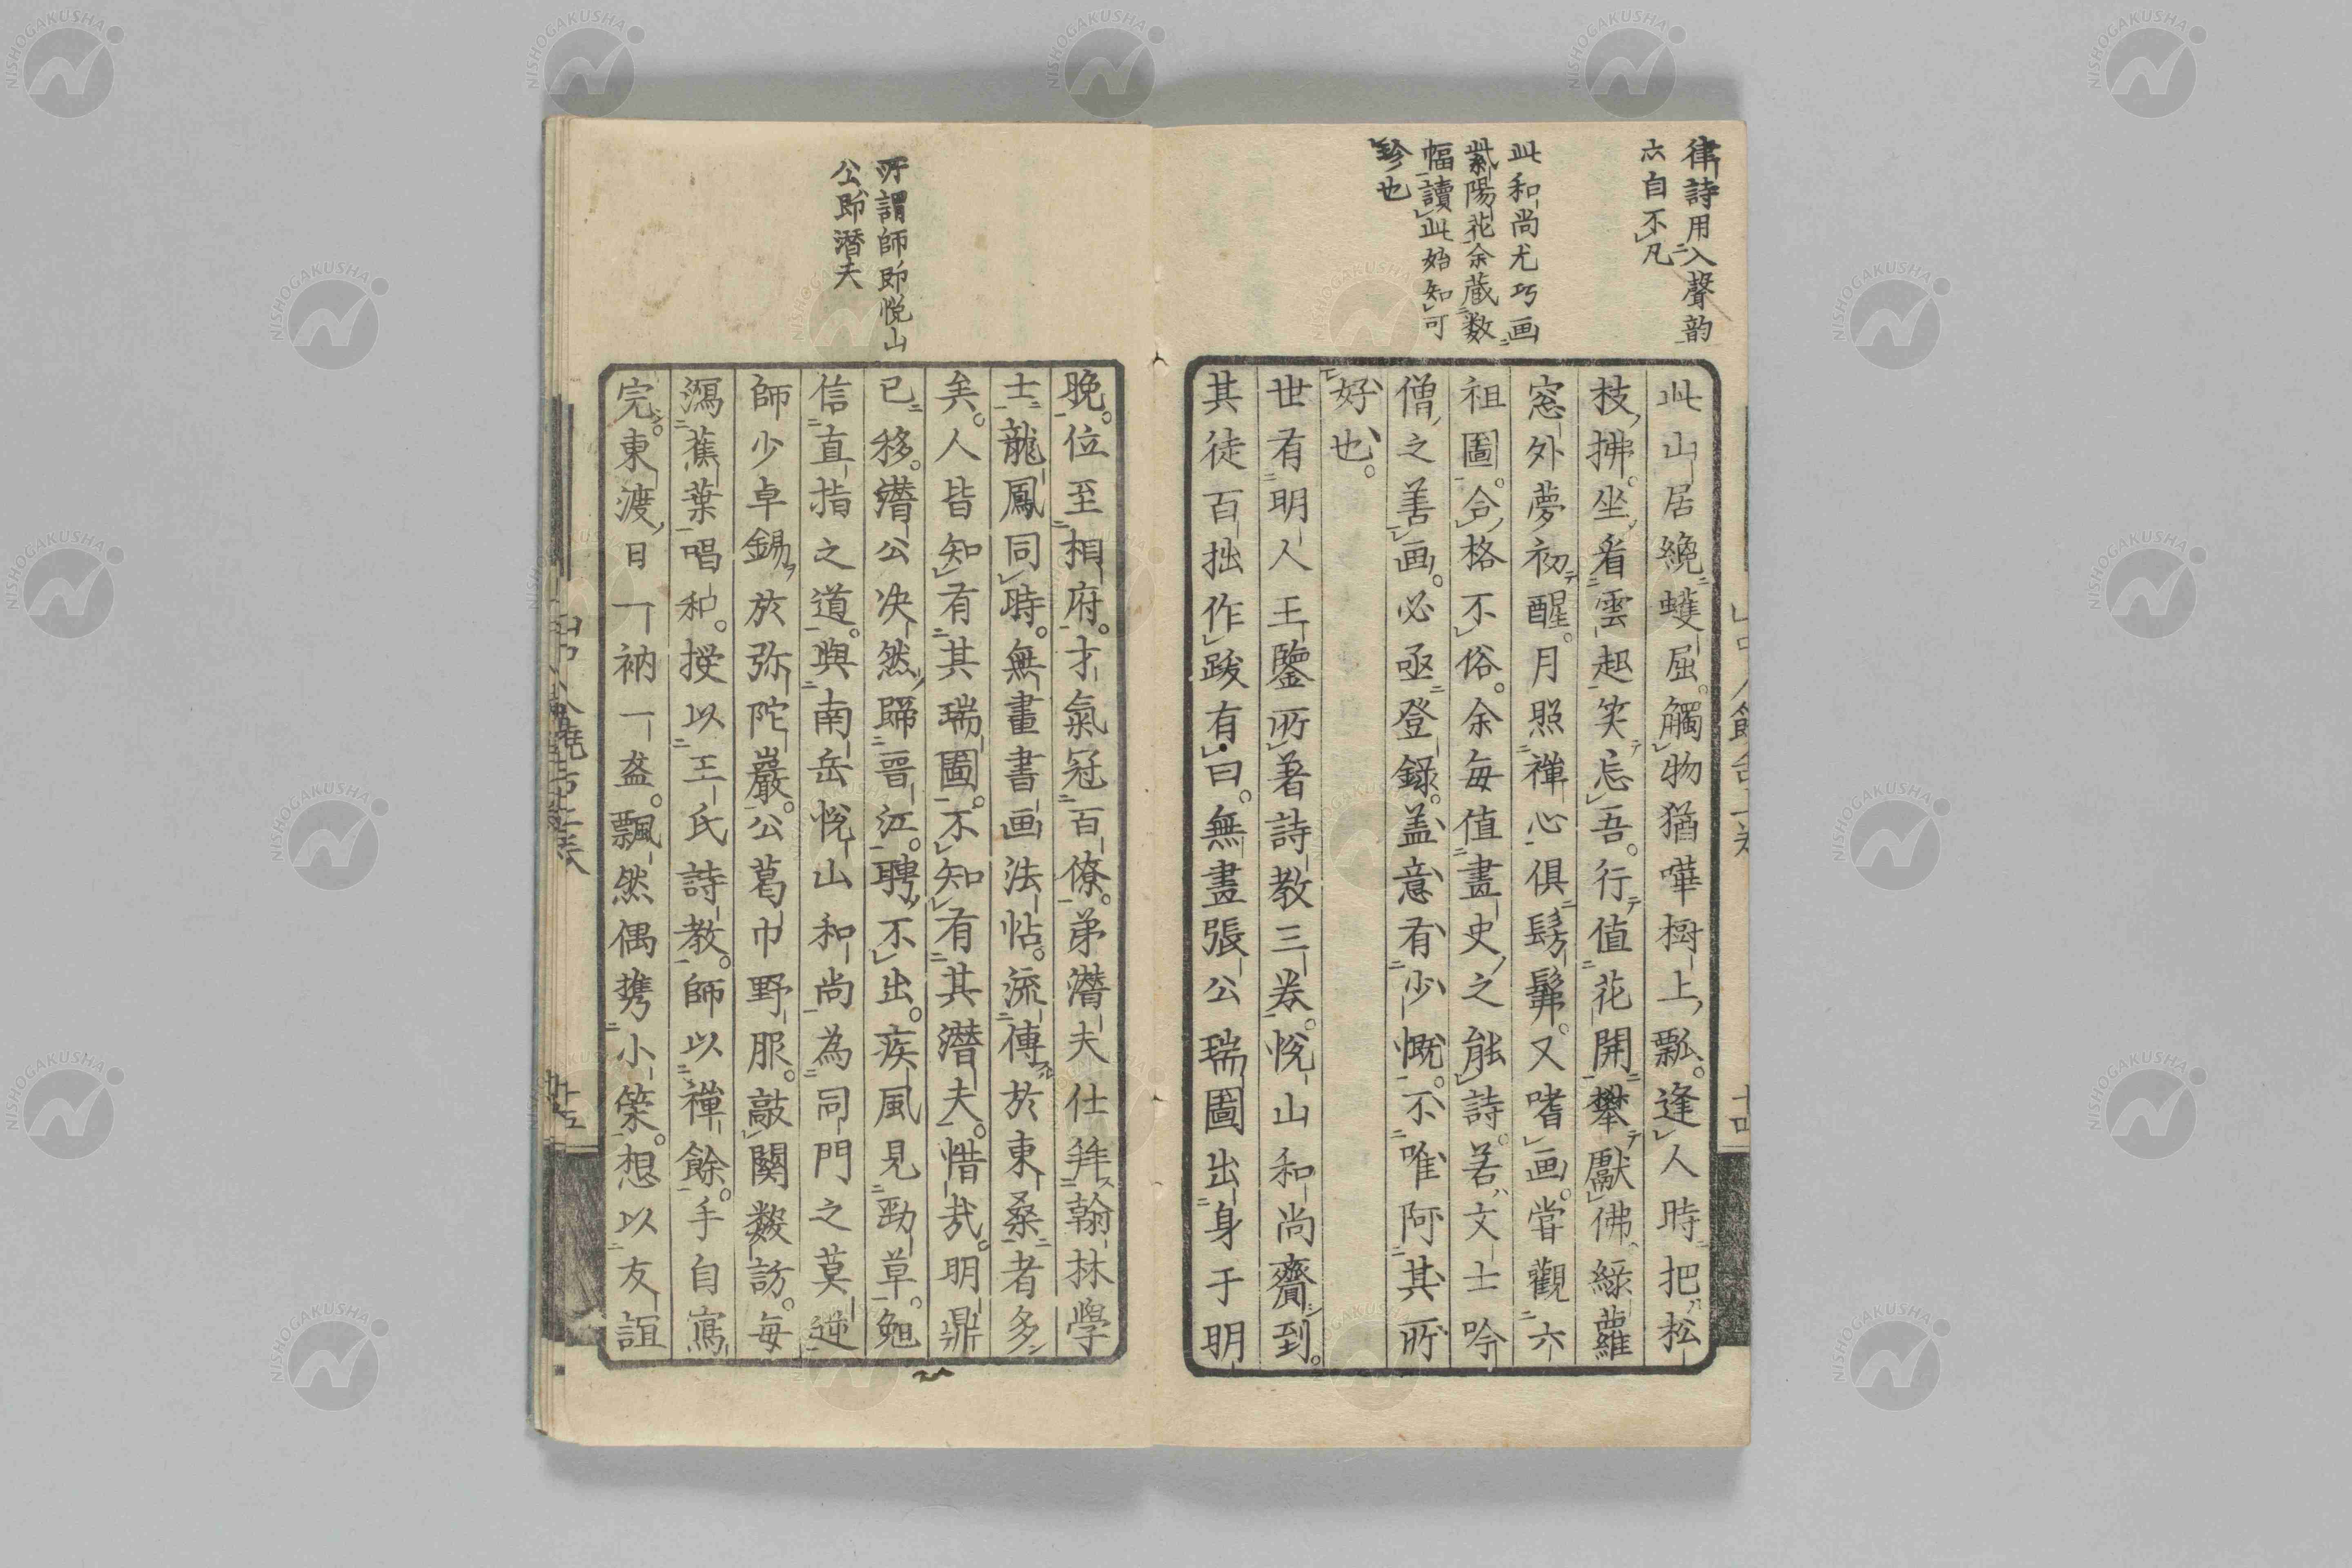 律詩用入聲韵
六自不凡
此和尚尤巧画
紫陽花余蔵数
幅讀此始知可
珍也
此山居絶蠖屈。觸物猶嘩樹上瓢。逢人時把松
枝拂。坐看雲起笑忘吾。行値花開攀獻佛。緑蘿
窓外夢初醒。月照禪心俱髣髴。又嗜画。嘗觀六
祖圖。合格不俗。余毎値畫史之能詩。若文士吟
僧之善画。必亟登録。盖意有少慨。不唯阿其所
好也。
世有明人王鑒所著詩教三卷。悦山和尚齎到。
其徒百拙作跋有曰。無畫張公瑞圖出身于明
所謂師即悦山
公即潜夫
晩。位至相府。才氣冠百僚。弟潜夫仕拜翰林學
士。龍鳳同時。無畫書画法帖。流傳於東桑者多
矣。人皆知有其瑞圖。不知有其潜夫。惜哉。明鼎
已移。潜公决然歸晋江。聘不出。疾風見勁草。勉
信直指之道。與南岳悦山和尚為同門之莫逆
師少卓錫於弥陀巖。公葛巾野服。敲關数訪。毎
瀉蕉葉唱和。授以王氏詩教。師以禪餘。手自寫
完。東渡日一衲一盔。飄然偶携小策。想以友誼